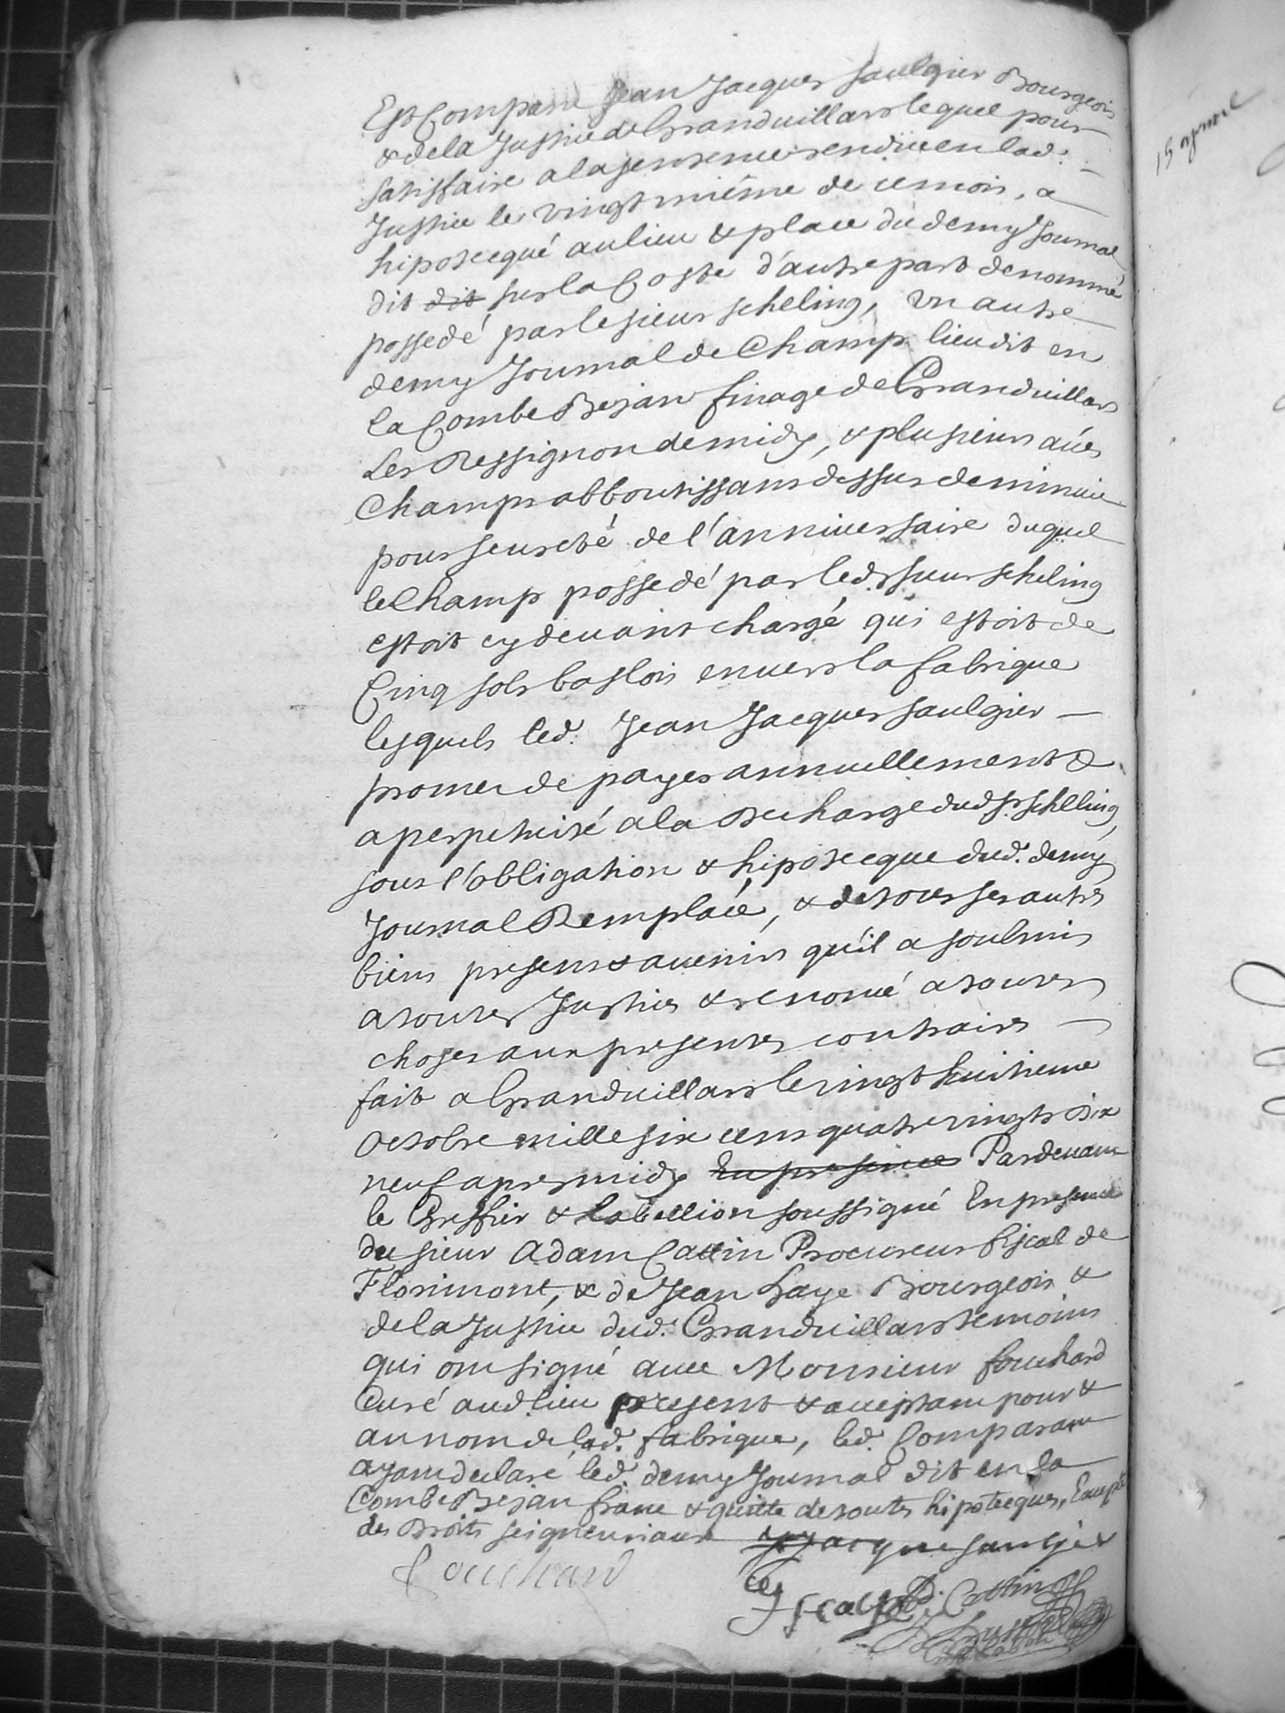 Est Comparu Jean Jacques Saulgier Bourgeois
& de la Justice de Granduillars lequel pour
satisfaire a la sentence rendüe en lad.
Justice le vingtmiême de ce mois, a
hipotecqué au lieu & place du demy Journal
dit dit sur la Coste d'autre part denommé
possedé par le sieur scheling, vn autre
demy Journal de Champ lieudit en
la Combe Bejan finage de Granduillars
Les Ressignon de midy, & plusieurs aũes
Champs abboutissans dessus de minuie
pour seureté de l'anniuersaire duquel
le Champ possedé par led. sieur scheling
estoit cy deuant chargé qui estoit de
Cinq sols baslois enuers la fabrique
lesquels led. Jean Jacques Saulgier
promet de payer annuellement &
a perpetuité a la Decharge dud. Sr. Scheling
sous l'obligation & hipotecque dud. demy
Journal Remplacé, & de tous ses autres
biens presens & auenirs qu'il a soubmis
a toutes Justices & renoncé a toutes
choses aux presentes contraires
fait a Granduillars le vingt huitieme
Octobre mille six cens quatre vingts dix
neuf apres midy En presence Pardeuant
le Greffier & Tabellion soussigné En presence
du sieur Adam Cattin Procureur fiscal de
Florimont, & de Jean Haye Bourgeois &
de la Justice dud. Granduillars temoins
qui ont signé auec Monsieur fouchard
Curé aud. lieu present & acceptant pour &
au nom de lad. fabrique, led. Comparant
ayant declaré led. demy Journal dit en la
Combe Bejan franc & quitte de toutes hipotecques, Excepté
des Droits seigneuriaux J Jacque Saulgier
Fouchard
Cattin
15